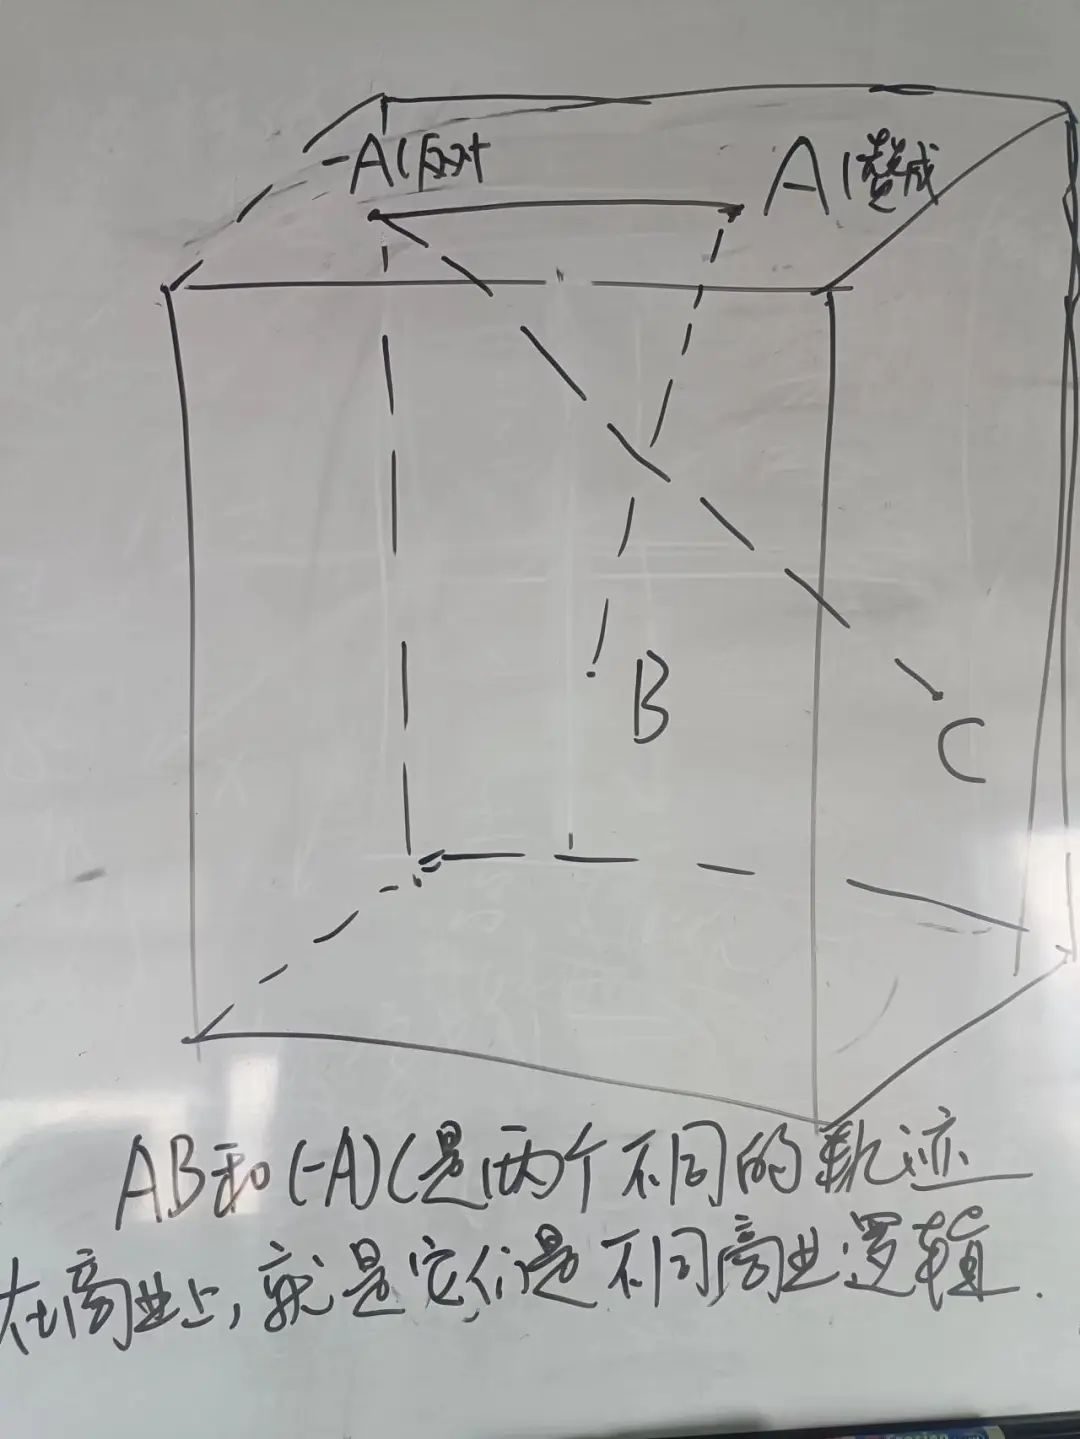 -A(反对
A(赞成
B
C
AB和(-A)C是两个不同的轨迹
在商业上,就是它们是不同商业逻辑.